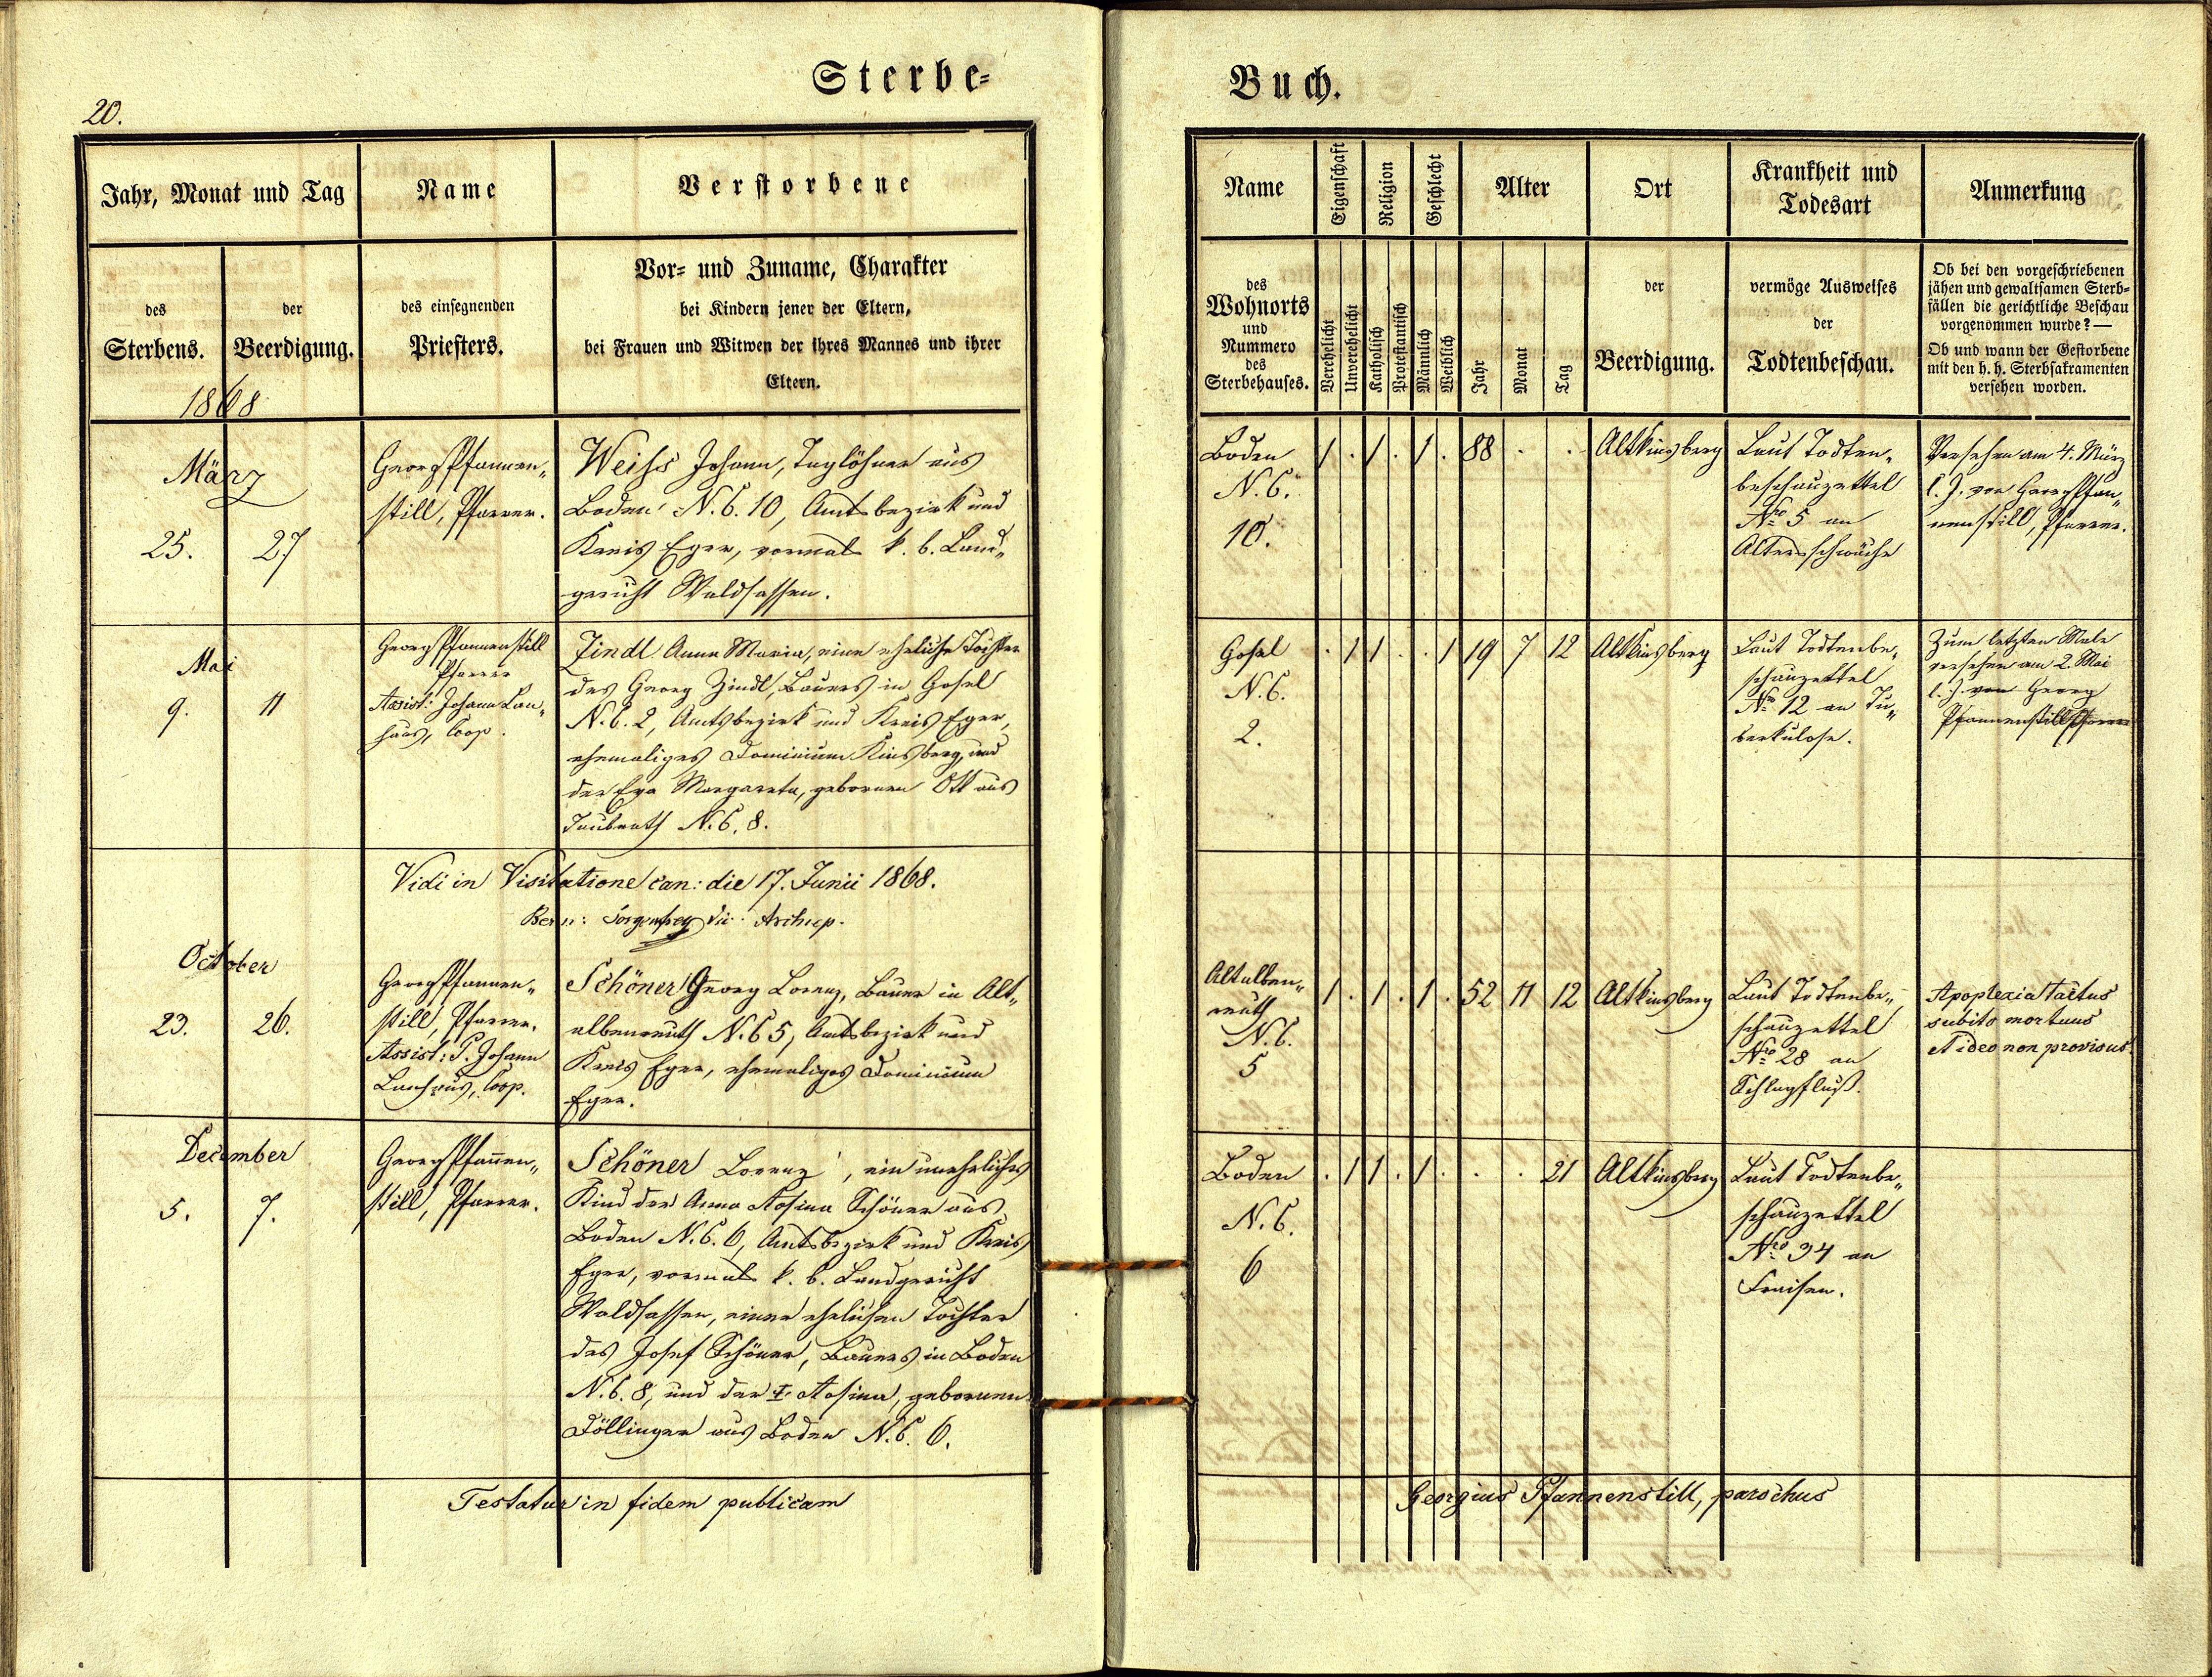 Sterbe=
20.
Jahr, Monat und Tag
Name
Verstorbene
des
Sterbens.
der
Beerdigung.
des einsegnenden
Priesters.
Vor= und Zuname, Charakter
bei Kindern jener der Eltern,
bei Frauen und Witwen der ihres Mannes und ihrer
Eltern.
1868
März
25. 27
Georg Pfannen„
still, Pfarrer.
Weiss Johann, Taglöhner aus
Boden N. C. 10, Amtsbezirk und
Kreis Eger, vormals k. b. Land„
gericht Waldsassen.
Mai
9. 11
Georg Pfannenstill
Pfarrer
Assist: Johann Lan„
haus, Coop.
Zindl Anna Maria, eine eheliche Tochter
des Georg Zindl, Bauers in Gosel
N. C. 2, Amtsbezirk und Kreis Eger,
ehemaliges Dominium Kinsberg, und
der Eva Margareta, gebornen Ott aus
Taubrath N. C. 8.
Vidi in Visitatione can: die 17. Junii 1868.
October
23. 26.
Georg Pfannen„
still, Pfarrer.
Assist: P. Johann
Lanhaus, Coop.
Schöner Georg Lorenz, Bauer in Alt„
albenreuth N. C 5, Amtsbezirk und
Kreis Eger, ehemaliges Dominium
Eger.
December
5. 7.
Georg Pfannen„
still, Pfarrer.
Schöner Lorenz, ein uneheliches
Kind der Anna Rosina Schöner aus
Boden N. C. 6, Amtsbezirk und Kreis
Eger, vormals k. b. Landgericht
Waldsassen, einer ehelichen Tochter
des Josef Schöner, Bauers in Boden
N. C. 8, und der Rosina, gebornen
Döllinger aus Boden N. C. 6.
Testatur in fidem publicam
Buch.
Name
Eigenschaft
Religion
Geschlecht
Alter
Ort
Krankheit und
Todesart
Anmerkung
des
Wohnorts
und
Nummero
des
Sterbehauses.
Verehelicht
Unverehelicht
Katholisch
Protestantisch
Männlich
Weiblich
Jahr
Monat
Tag
der
Beerdigung.
vermöge Ausweises
der
Todtenbeschau.
Ob bei den vorgeschriebenen
jähen und gewaltsamen Sterb=
fällen die gerichtliche Beschau
vorgenommen wurde? —
Ob und wann der Gestorbene
mit den h. h. Sterbsakramenten
versehen worden.
Boden
N. C.
10.
1 . 1 . 1 . 88 . .
Altkinsberg
Laut Todten„
beschauzettel
Nro 5 an
Altersschwäche
Versehen am 4. März
l. J. von Georg Pfan„
nenstill, Pfarrer.
Gosel
N. C.
2.
. 1 1 . . 1 19 7 12
Altkinsberg
Laut Todtenbe„
schauzettel
Nro 12 an Tu„
berkulose.
Zum letzten Male
versehen am 2. Mai
l. J. von Georg
Pfannenstill Pfarrer
Altalben„
reuth
N. C.
5
1 . 1 . 1 . 52 11 12
Altkinsberg
Laut Todtenbe„
schauzettel
Nro 28 an
Schlagfluß.
Apoplexia tactus
subito mortuus
ideo non provisus.
Boden
N. C.
6
. 1 1 . 1 . . . 21
Altkinsberg
Laut Todtenbe„
schauzettel
Nro 34 an
Fraisen.
Georgius Pfannenstill, parochus